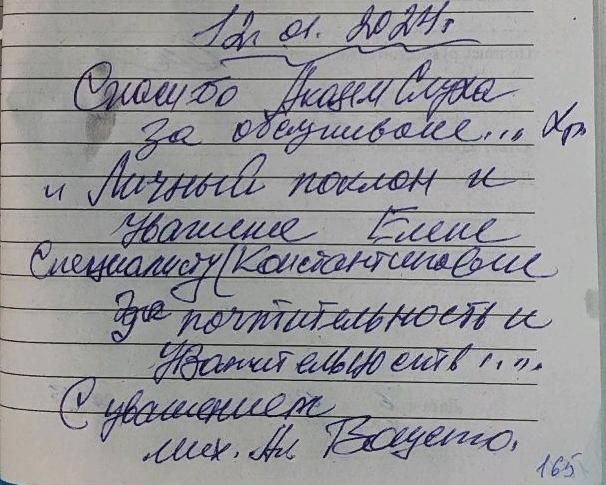 12. 01. 2024г
Спасибо Академ Слуха
за обслуживание...
и Личный поклон и
уважение Елене
Специалисту (Константиновне
за почтительность и
уважительность....
С уважением
Мих. Ал
165